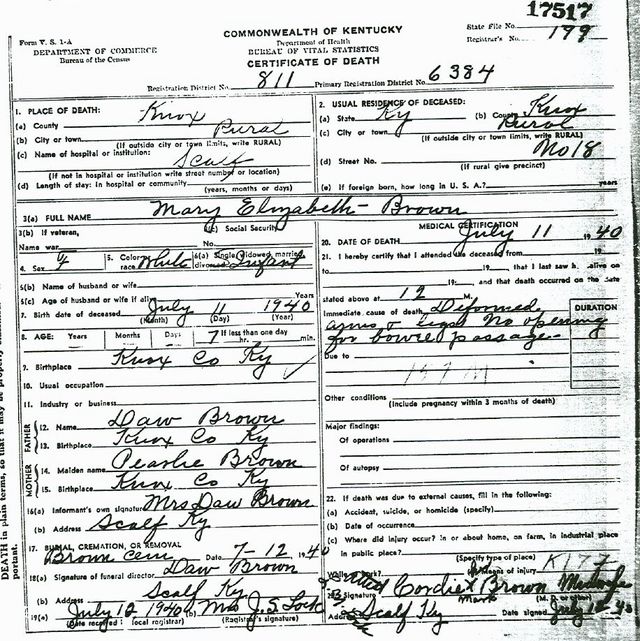 17517
COMMONWEALTH OF KENTUCKY
State File No.
Form V. S. 1-A
Department of Health
Registrar's No. 199
DEPARTMENT OF COMMERCE
BUREAU OF VITAL STATISTICS
Bureau of the Census
CERTIFICATE OF DEATH
Registration District No. 811 Primary Registration District No. 6384
1. PLACE OF DEATH: Knox
(a) County
(b) City or town Rural
(If outside city or town limits, write RURAL)
(c) Name of hospital or institution:
Scalf
(If not in hospital or institution write street number or location)
(d) Length of stay: In hospital or community
(years, months or days)
2. USUAL RESIDENCE OF DECEASED:
(a) State Ky (b) County Knox
(c) City or town Rural
(If outside city or town limits, write RURAL)
(d) Street No. No 18
(If rural give precinct)
(e) If foreign born, how long in U. S. A.? years
3(a) FULL NAME Mary Elizabeth Brown
3(b) If veteran, (c) Social Security
Name war No.
4. Sex 5. Color or race White 6(a) Single, widowed, married, divorced Infant
6(b) Name of husband or wife
6(c) Age of husband or wife if alive Years
7. Birth date of deceased July 11 1940
(Month) (Day) (Year)
8. AGE: Years Months Days If less than one day
7 hr. min.
9. Birthplace Knox Co Ky
10. Usual occupation
11. Industry or business
FATHER
12. Name Daw Brown
13. Birthplace Knox Co Ky
MOTHER
14. Maiden name Pearlie Brown
15. Birthplace Knox Co Ky
16(a) Informant's own signature Mrs Daw Brown
(b) Address Scalf Ky
17. BURIAL, CREMATION, OR REMOVAL
Brown Cem Date 7-12 1940
18(a) Signature of funeral director Daw Brown
(b) Address Scalf Ky
19(a) July 12 1940 (b) Mrs J. S. Lock
(Date received local registrar) (Registrar's signature)
MEDICAL CERTIFICATION
20. DATE OF DEATH July 11 1940
21. I hereby certify that I attended the deceased from 19
to 19 that I last saw h alive on
19 and that death occurred on the date
stated above at 12 M.
Immediate cause of death Deformed
arms & legs No opening
for bowel passage
DURATION
Due to
Other conditions
(Include pregnancy within 3 months of death)
Major findings:
Of operations
Of autopsy
22. If death was due to external causes, fill in the following:
(a) Accident, suicide, or homicide (specify)
(b) Date of occurrence
(c) Where did injury occur? in or about home, on farm, in industrial place
in public place?
(Specify type of place)
While at work? Means of injury K177
23. Signature Cordie X Brown Midwife
Mark (M. D. or other)
Scalf Ky Date signed July
DEATH in plain terms, so that it may be properly
portant.